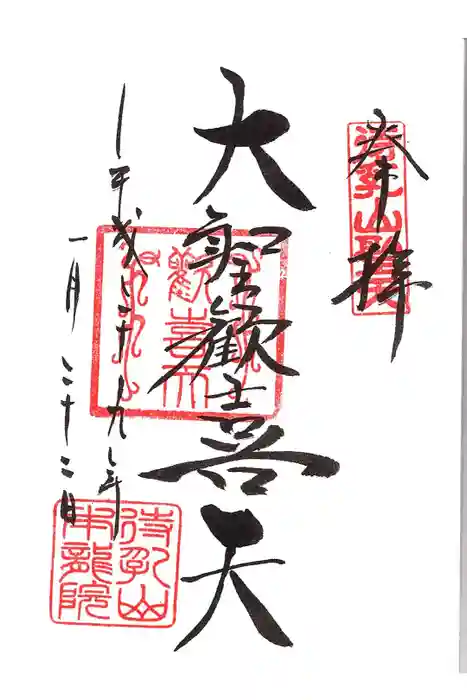 奉拝
待乳山聖天
大聖歓喜天
平成二十九年
一月二十二日
待乳山
本龍院